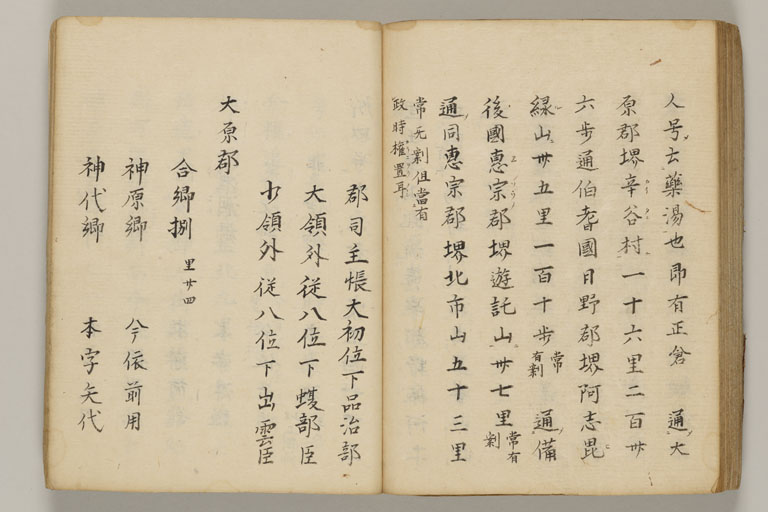 人号云藥湯也即有正倉通大
原郡堺辛谷村一十六里二百卅
六歩通伯耆國日野郡堺阿志毘
縁山卅五里一百十歩常有剗通備
後國恵宗郡堺遊託山卅七里常有剗
通同恵宗郡堺北市山五十三里
常无剗但當有
政時權置耳
郡司主帳大初位下品治部
大領外従八位下蝮部臣
少領外従八位下出雲臣
大原郡
合郷捌 里廿四
神原郷 今依前用
神代郷 本字矢代